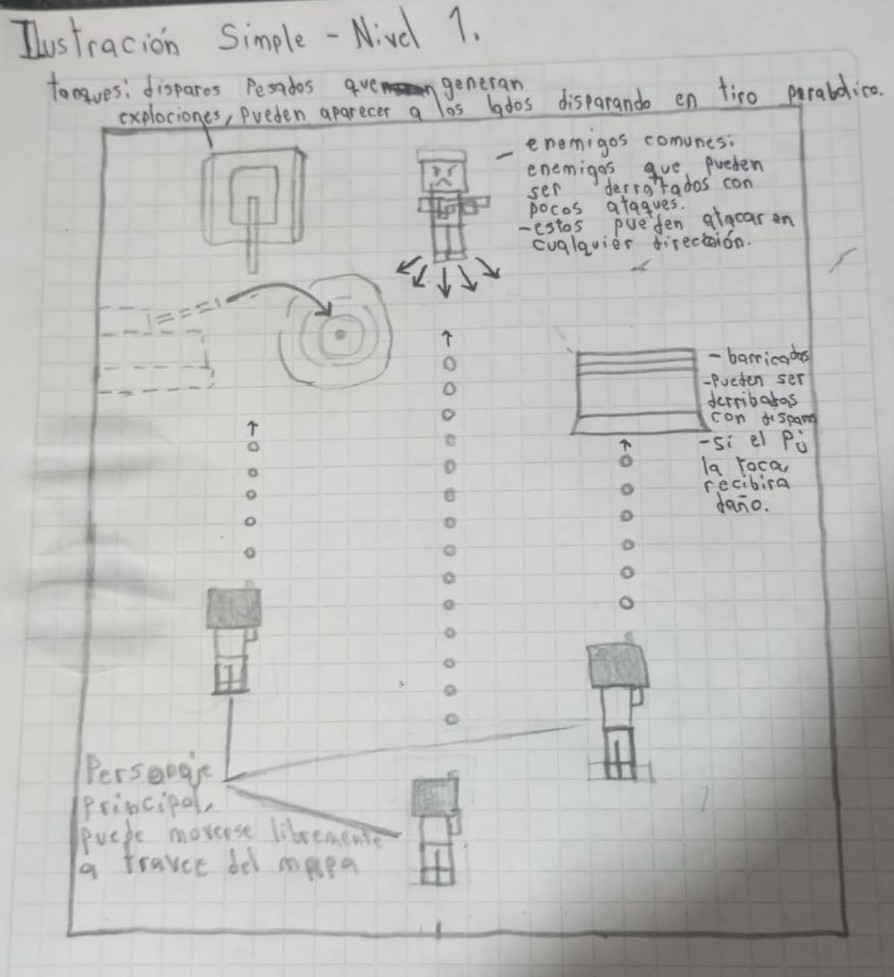 Ilustración Simple - Nivel 1.
tanques: disparos Pesados que generan
explociones, Pueden aparecer a los lados disparando en tiro parabolico.
- enemigos comunes:
enemigos que pueden
ser derrotados con
pocos ataques.
- estos pueden atacar en
cualquier dirección.
- barricadas
- Pueden ser
derribatos
con disparo
- si el PJ
la toca,
recibira
daño.
Personaje
principal,
puede moverse libremente
a travez del mapa